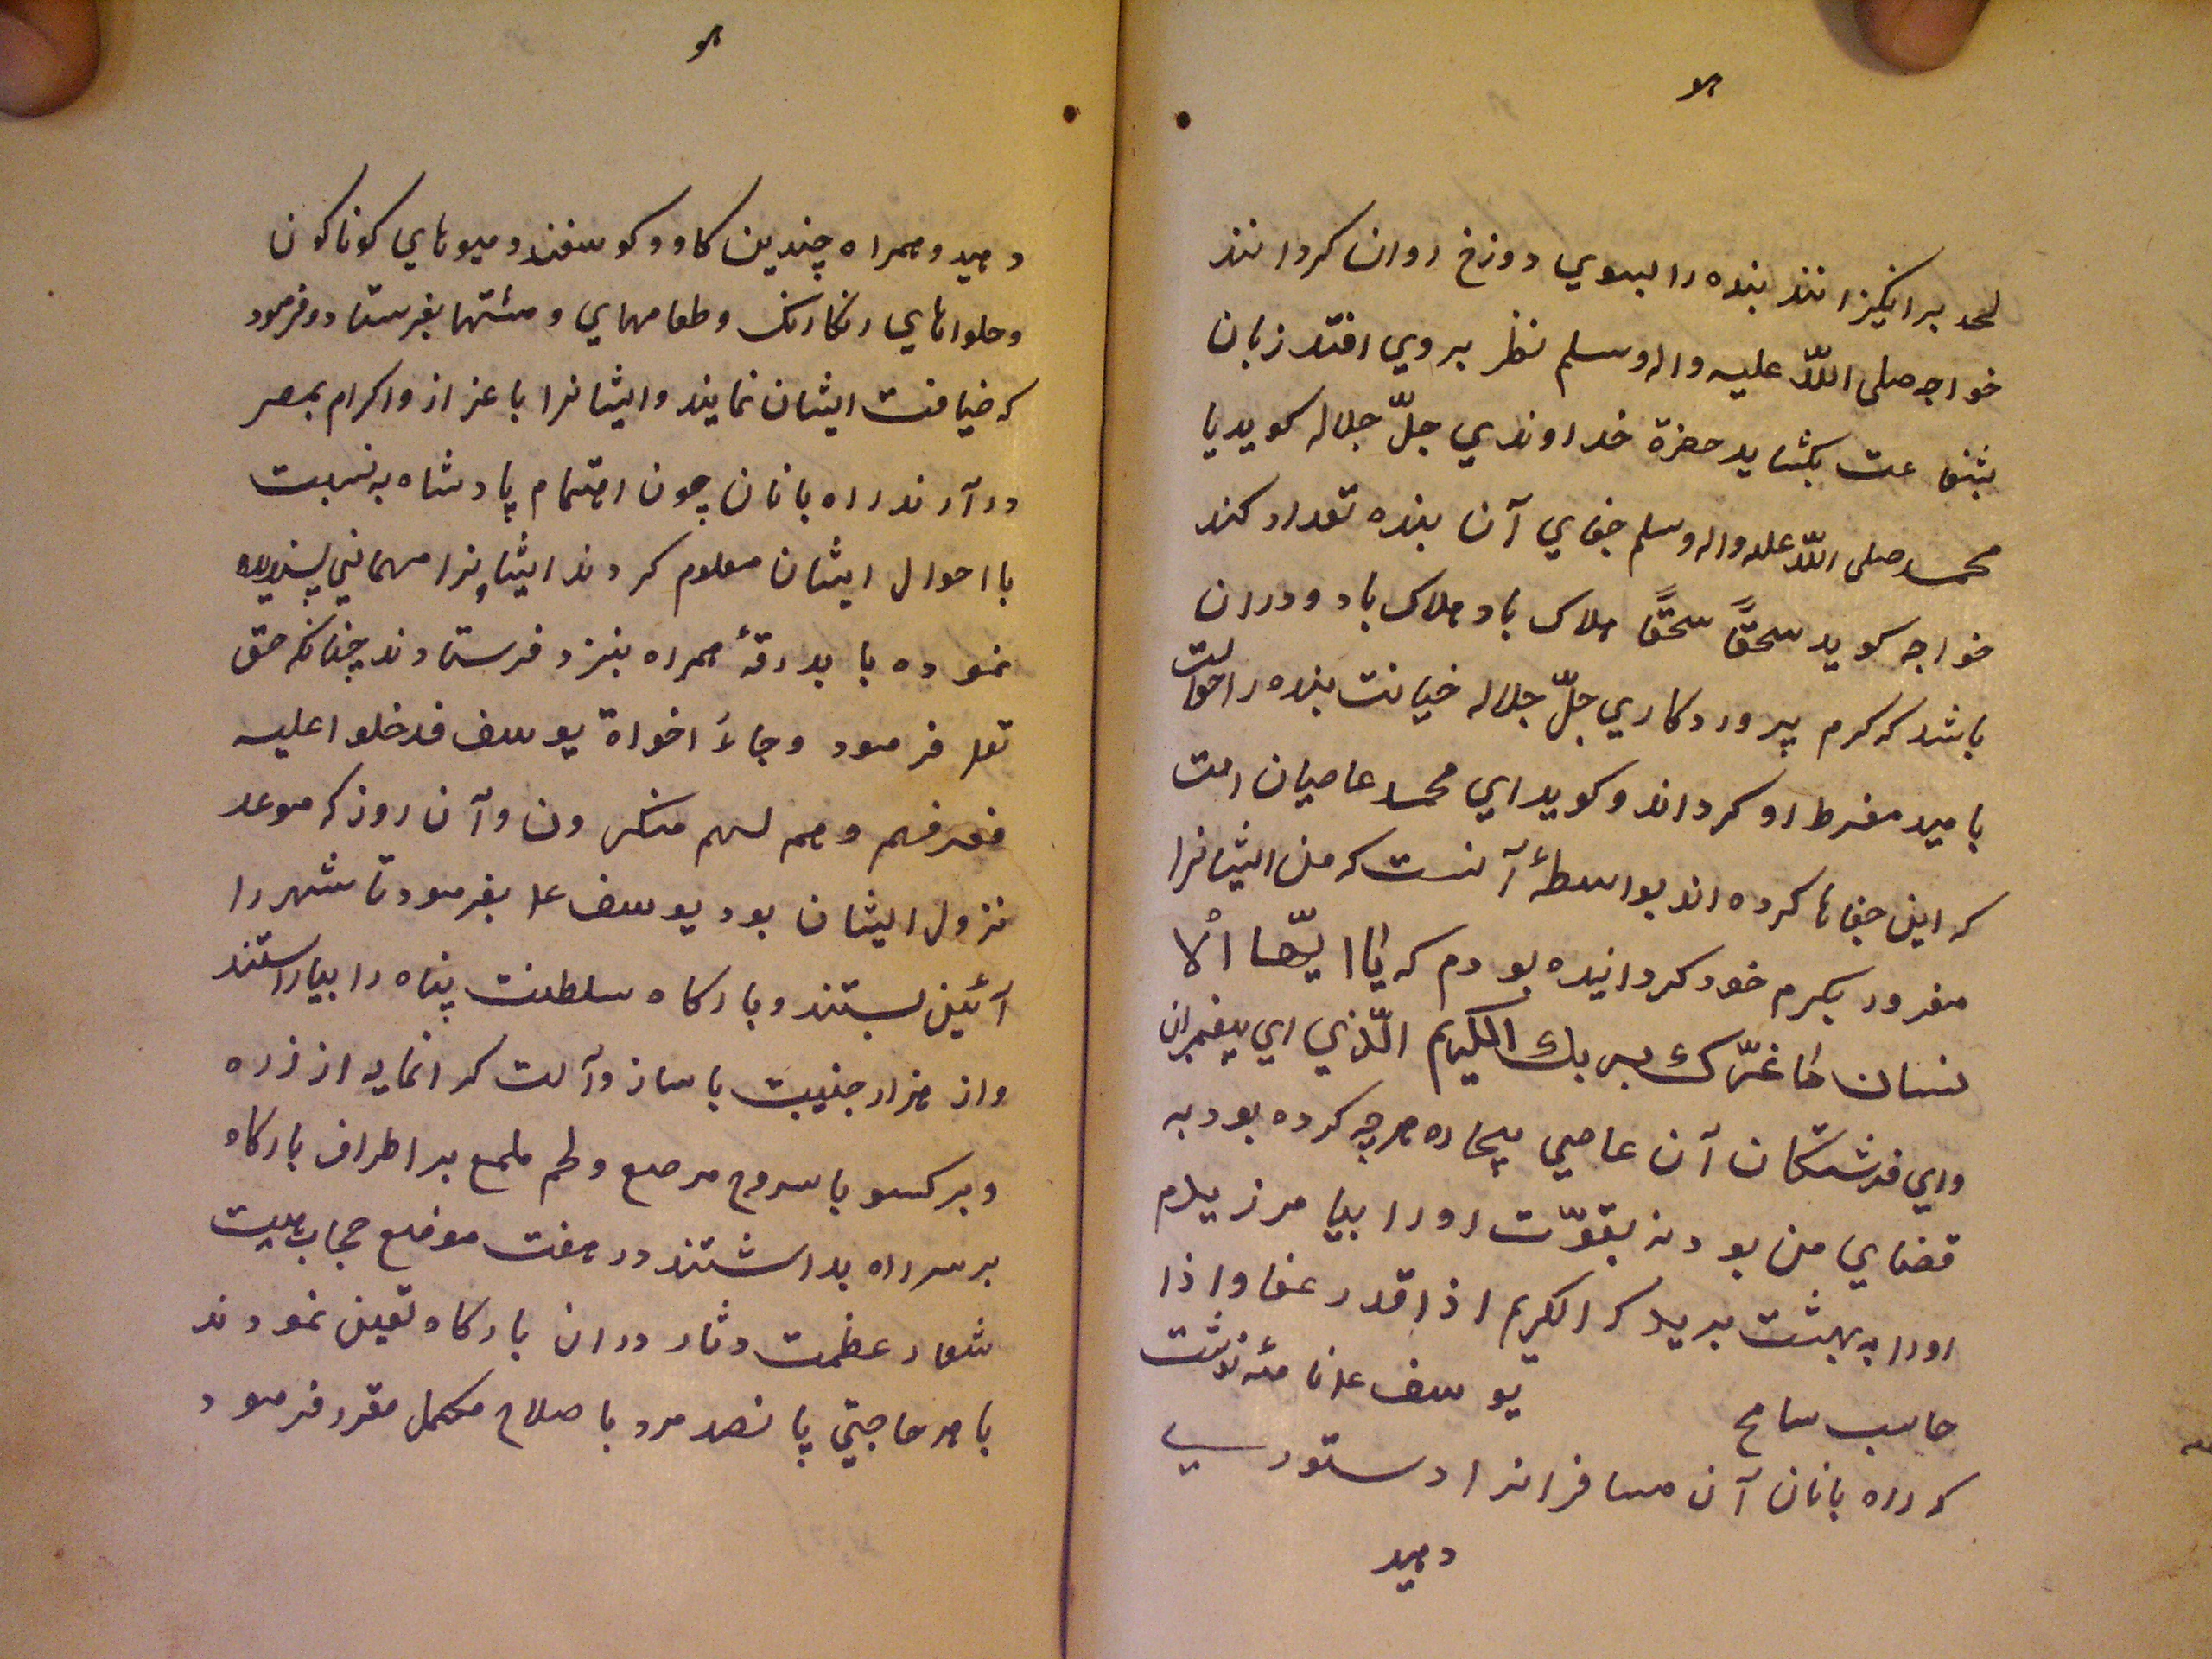 هو
لحد برانگیزانند بنده را بسوي دوزخ روان كردانند
خواجه صلى اللّه عليه واله وسلم نظر بروي افتد زبان
بشفاعت بكشايد حضرة خداوندي جلّ جلاله كويد يا
محمد صلى اللّه عله واله وسلم جفاي آن بنده تعداد كند
خواجه كويد سحقًّا سحقًّا هلاک باد هلاک باد ودران
باشد كه كرم پروردكاري جلّ جلاله خيانت بنده را حوالت
باميد مفرط او كرداند وكويد اي محمد عاصيان امت
كه اين جفاها كرده اند بواسطهٔ آنست كه من ايشانرا
مغرور بكرم خود كردانيده بودم كه يا ايّها الا
نسان ما غرّك بربك الكريم الّذي اي پيغمبران
واي فرشتكان آن عاصي بيچاره هرچه كرده بود به
قضاي من بود نه بقوّت اورا بيامرزيدم
اورا به بهشت بريد كه الكريم اذا قدر عفا واذا
حاسب سامح يوسف علر نامه نوشت
كه راه بانان آن مسافرانرا دستورسي
دهيد
هو
دهيد وهمراه چندين كاو وكوسفند وميوهاي كوناكون
وحلواهاي رنكارنک وطعامهاي ومشتها بفرستاد وفرمود
كه ضيافت ايشان نمايند وايشانرا باعزاز واكرام بمصر
درآرند راه بانان چون اهتمام پادشاه به نسبت
با احوال ايشان معلوم كردند ايشانرا مهماني پسنديده
نموده با بدرقهٔ همراه بنزد فرستادند چنانكه حق
تعا فرمود وجاءَ اخواة يوسف فدخلوا عليه
فعرفهم وهم لهم منكرون وآن روز كه موعد
نزول ايشان بود يوسف علـ بفرمود تا شهر را
آئين بستند وباركاه سلطنت پناه را بياراستند
واز هزار جنيبت باساز وآلت كرانمايه از زره
وبركستو باسروج مرصع ولجم ملمع بر اطراف باركاه
بر سرراه بداشتند در هفت موضع حجاب هيبت
شعار عظمت دثار دران باركاه تعين نمودند
باهر حاجتي پانصد مرد باصلاح مكمل مقرر فرمود